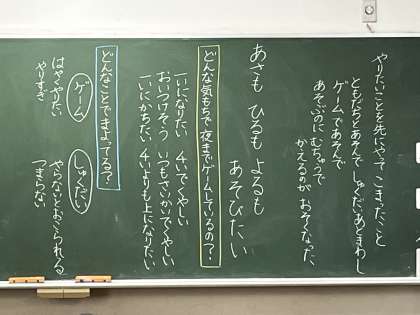 やりたいことを先にやって こまったこと
ともだちとあそんで しゅくだいあとまわし
ゲームであそんで
あそぶのに むちゅうで
かえるのが おそくなった、
あさも ひるも よるも
あそびたい
どんな気もちで夜までゲームしているの?
一いになりたい 4いでくやしい
おいつけそう いつもさいかいでくやしい
一いにかちたい 4いよりも上になりたい
どんなことでまよってるの?
ゲーム
はやくやりたい
やりすぎ
しゅくだい
やらないとおこられる
つまらない